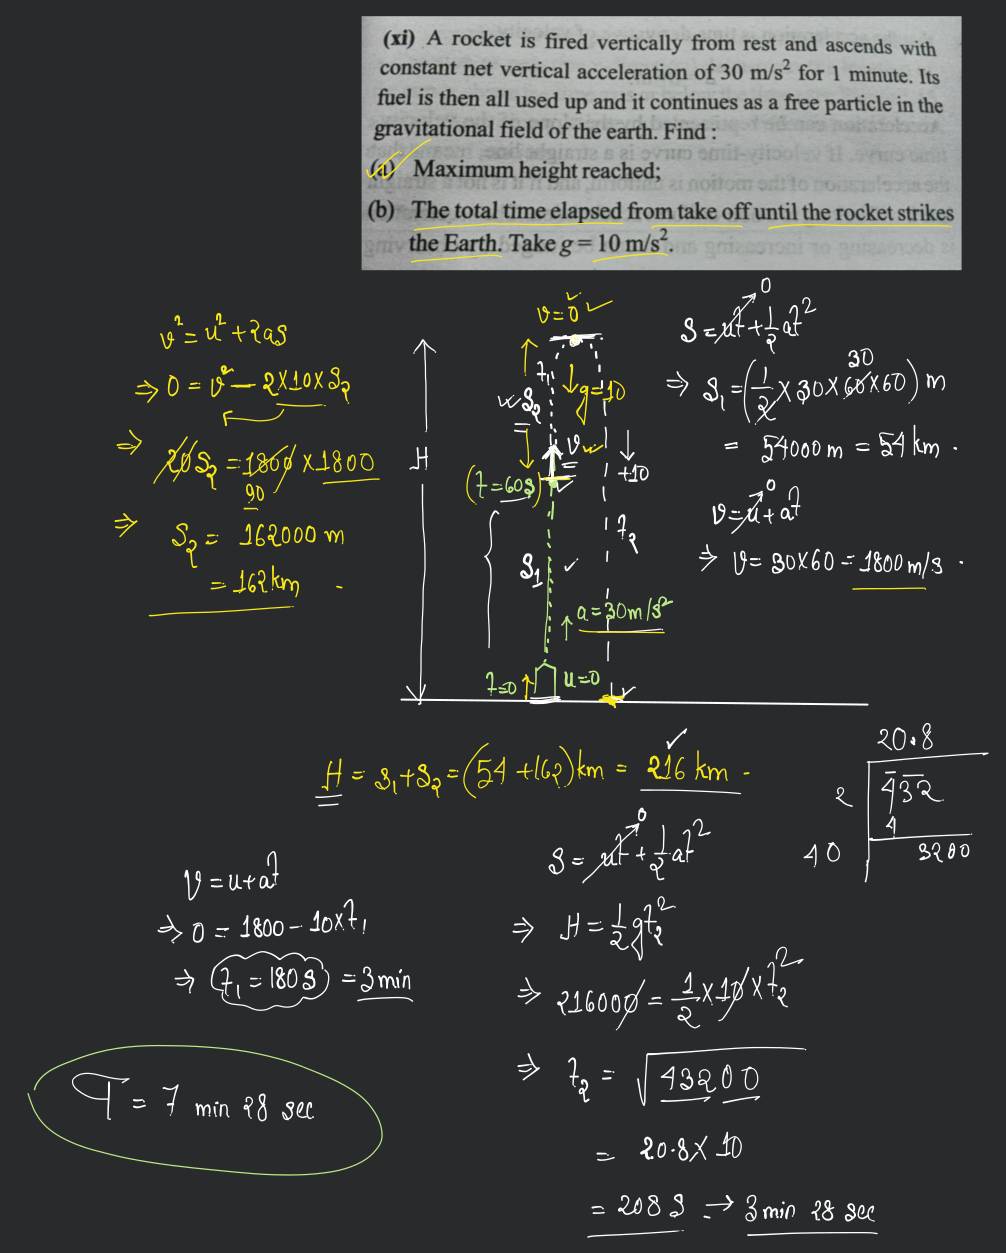 (xi) A rocket is fired vertically from rest and ascends with
constant net vertical acceleration of 30 m/s² for 1 minute. Its
fuel is then all used up and it continues as a free particle in the
gravitational field of the earth. Find :
(a) Maximum height reached;
(b) The total time elapsed from take off until the rocket strikes
the Earth. Take g = 10 m/s².
v² = u² + 2as
⇒ 0 = v² − 2×10×S₂
⇒ 20S₂ = 1800 × 1800
90
⇒ S₂ = 162000 m
= 162 km .
v = 0
t₁
S₂
g = 10
v
+10
(t = 60s)
H
t₂
S₁
a = 30 m/s²
t = 0
u = 0
0
S = ut + ½at²
30
⇒ S₁ = (½ × 30 × 60 × 60) m
= 54000 m = 54 km .
0
v = u + at
⇒ v = 30×60 = 1800 m/s .
H = S₁ + S₂ = (54 + 162) km = 216 km .
20.8
2 432
4
40 3200
v = u + at
⇒ 0 = 1800 − 10×t₁
⇒ t₁ = 180 s = 3 min
T = 7 min 28 sec
0
S = ut + ½at²
⇒ H = ½gt₂²
⇒ 216000 = ½ × 10 × t₂²
⇒ t₂ = √43200
= 20.8 × 10
= 208 s → 3 min 28 sec